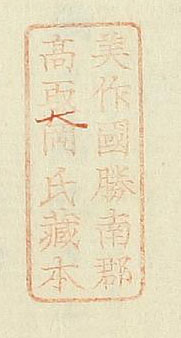 美作國勝南郡
高岡氏藏本